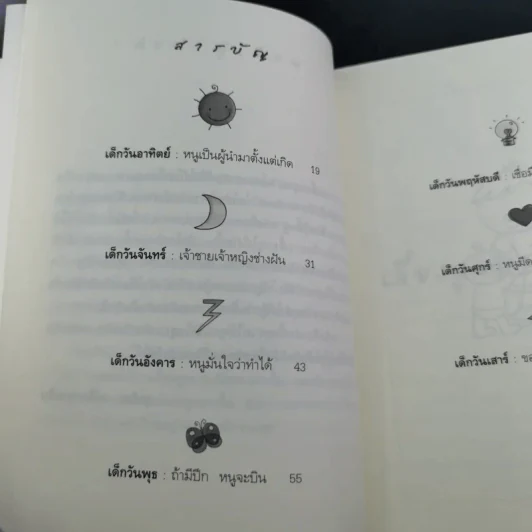 สารบัญ
เด็กวันอาทิตย์ : หนูเป็นผู้นำมาตั้งแต่เกิด 19
เด็กวันจันทร์ : เจ้าชายเจ้าหญิงช่างฝัน 31
เด็กวันอังคาร : หนูมั่นใจว่าทำได้ 43
เด็กวันพุธ : ถ้ามีปีก หนูจะบิน 55
เด็กวันพฤหัสบดี :
เด็กวันศุกร์ :
เด็กวันเสาร์ :